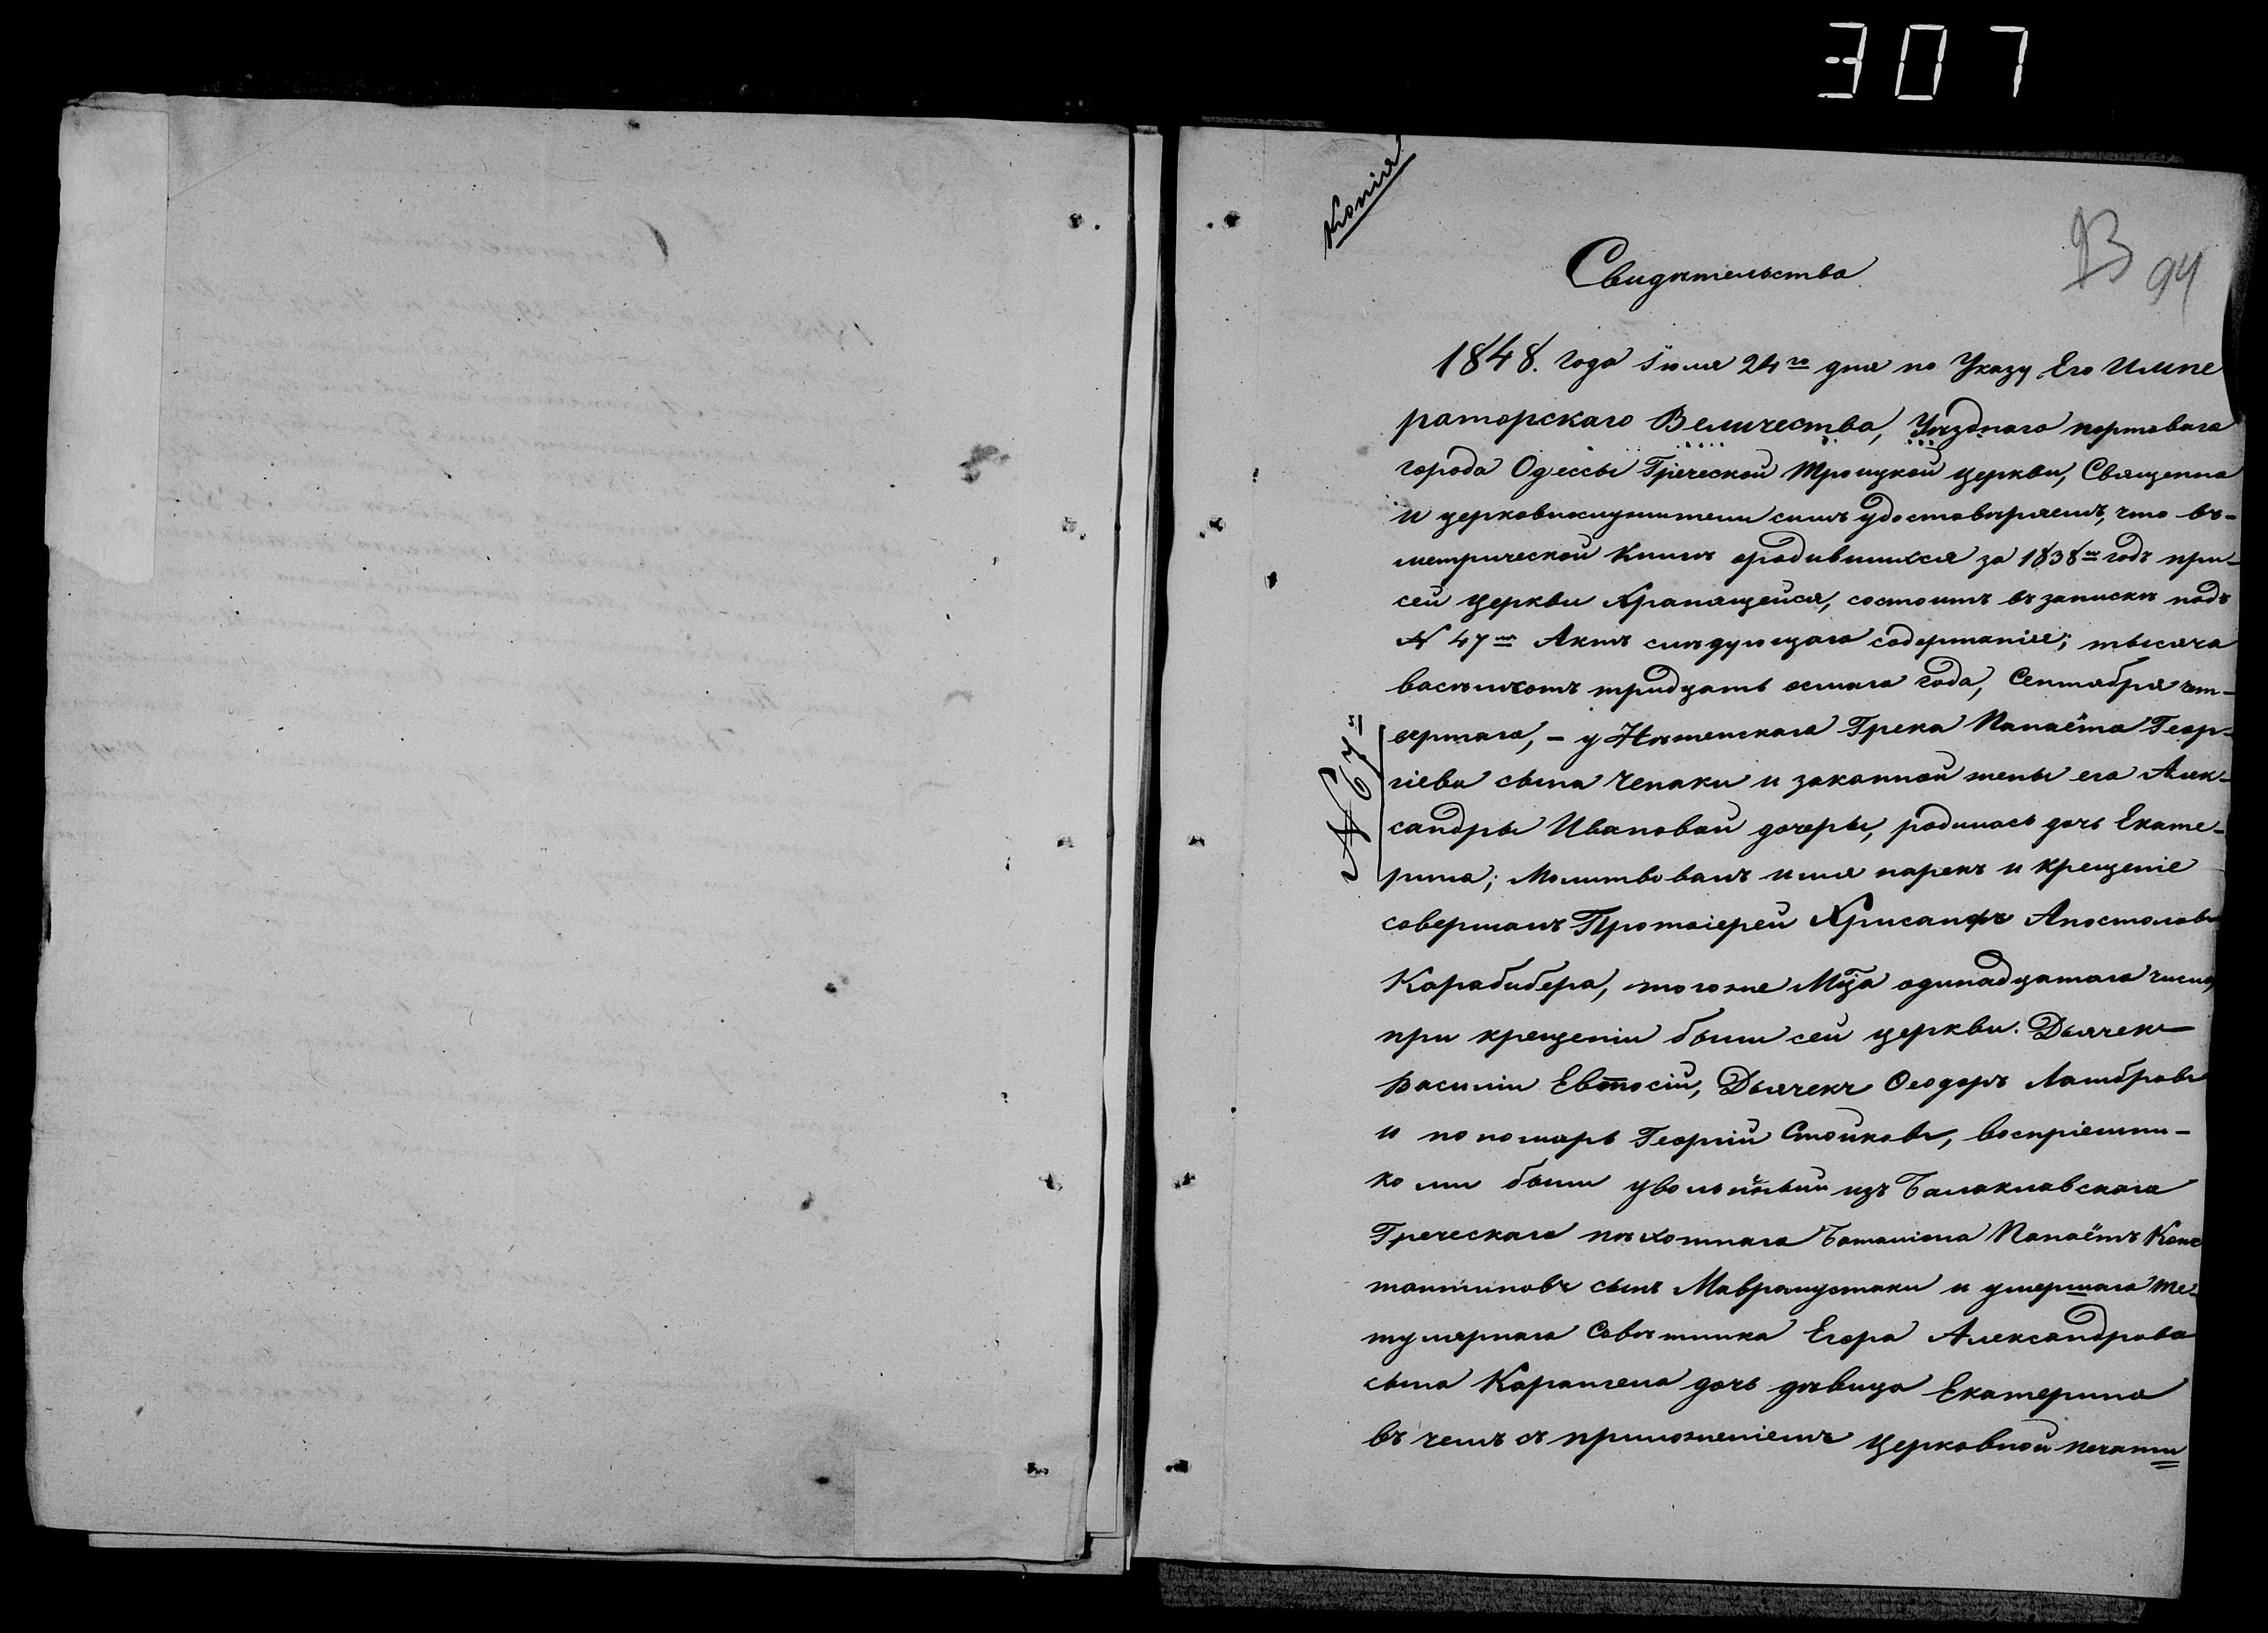 307
Копія
93 94
Свидѣтельство
1848. года Іюля 24го дня по Указу Его Импе
раторскаго Величества, Уѣзднаго портоваго
города Одессы Греческой Троицкой церкви, Священно
и церковнослужители симъ удостовѣряемъ, что въ-
метрической книгѣ ородившихся за 1838й годъ при-
сей церкви Хранящейся, состоитъ въ запискѣ подъ
№ 47мъ Актъ слѣдующаго содержанія; тысяча
восѣмсотъ тридцать осмаго года, Сентября чет-
вертаго, – у Нѣженскаго Грека Панаёта Геор-
гіева сына Чепаки и законной жены его Алек-
сандры Ивановой дочеры, родилась дочь Екате-
рина; Молитвовалъ имя нарекъ и крещеніе
совершалъ Протоіерей Хрисанфъ Апостоловъ
№ 67й
Карабибера, тогоже Мца одинадцатаго числа,
при крещеніи были сей церкви. Дьячекъ
Василій Евтосій, Дьячекъ Ѳеодоръ Ламбровъ
и пономарь Георгій Стойковъ, воспріемни-
ками были увольнѣный изъ Балаклавскаго
Греческаго пѣхотнаго Баталіона Панаётъ Конс
тантиновъ сынъ Мавромустаки и умершаго Те-
тулярнаго Совѣтника Егора Александрова
сына Карангела дочь дѣвица Екатерина
въ чемъ съ приложеніемъ церковной печати